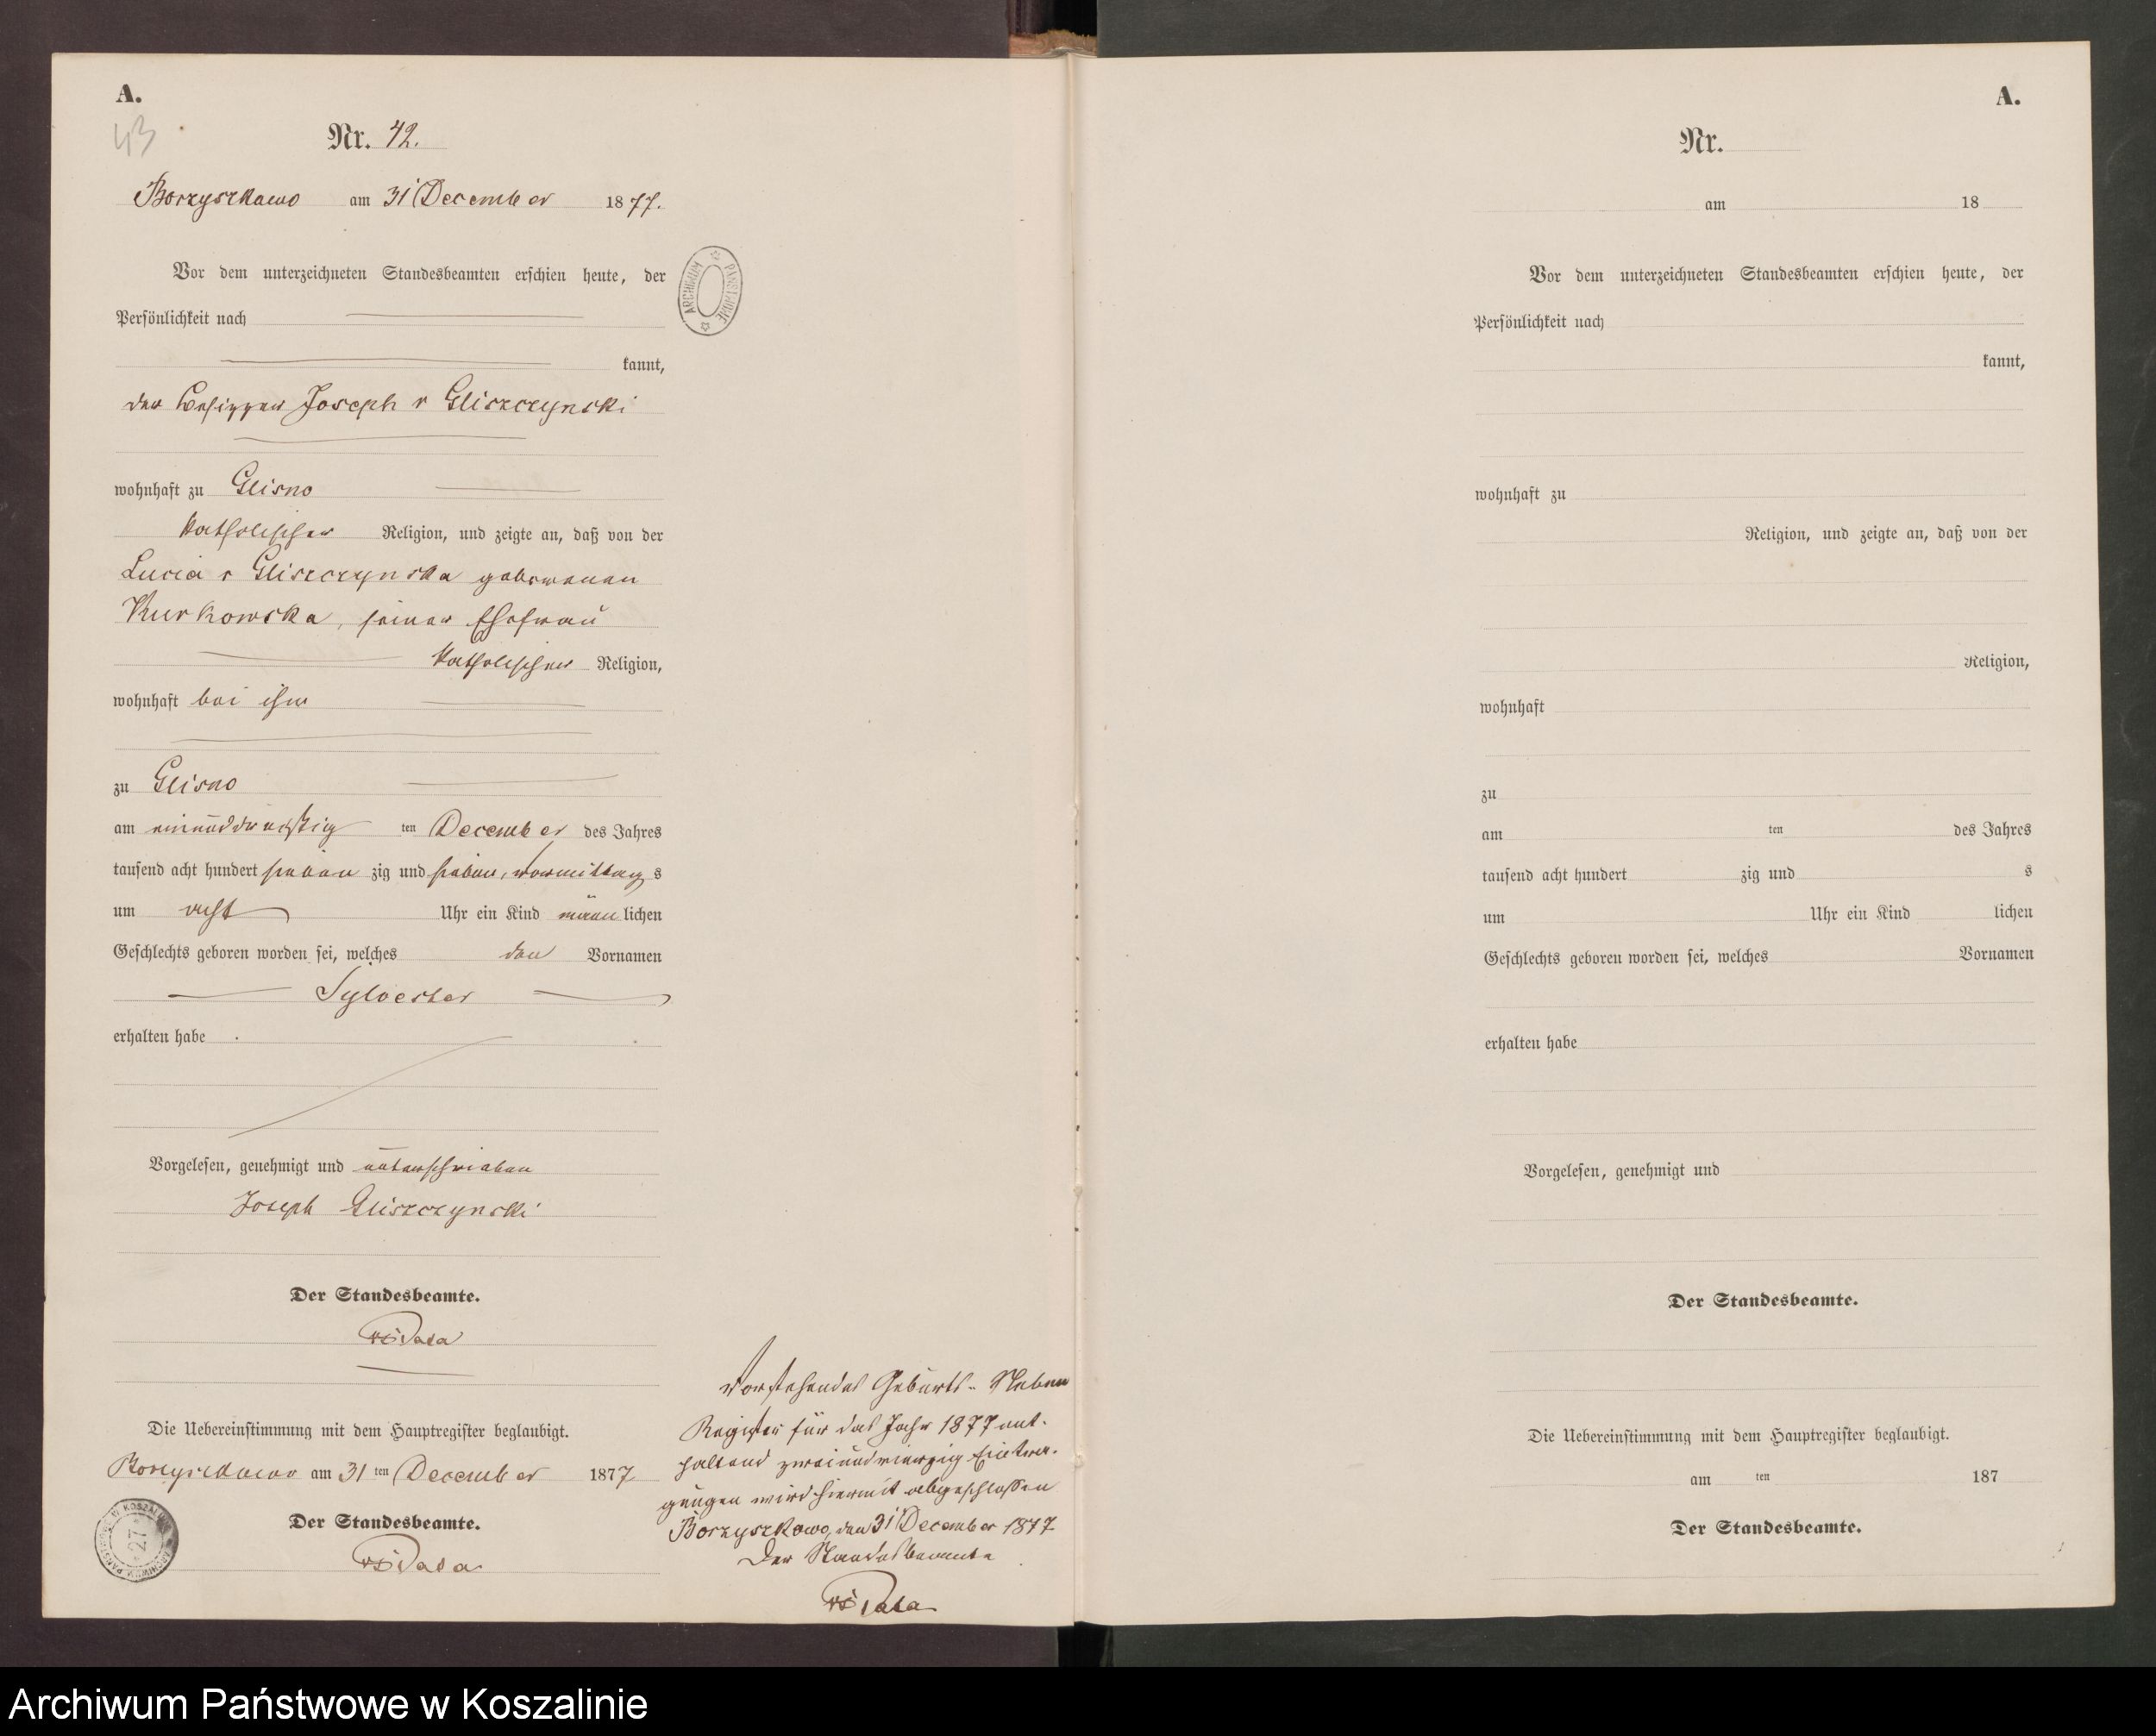 A.
43
Nr. 42.
Borzyszkowo am 31 December 1877.
Vor dem unterzeichneten Standesbeamten erschien heute, der
Persönlichkeit nach
kannt,
der Besitzer Joseph v Gliszczynski
wohnhaft zu Glisno
katholischer Religion, und zeigte an, daß von der
Lucia v Gliszczynska geborenen
Kurkowska, seiner Ehefrau
katholischer Religion,
wohnhaft bei ihm
zu Glisno
am einunddreißig ten December des Jahres
tausend acht hundert sieben zig und sieben, vormittag s
um acht Uhr ein Kind männ lichen
Geschlechts geboren worden sei, welches den Vornamen
Sylvester
erhalten habe.
Vorgelesen, genehmigt und unterschrieben
Joseph Gliszczynski
Der Standesbeamte.
Die Uebereinstimmung mit dem Hauptregister beglaubigt.
Borzyszkowo am 31 ten December 1877
Der Standesbeamte.
ARCHIWUM PAŃSTWOWE
ARCHIWUM PAŃSTWOWE W KOSZALINIE
27
Vorstehendes Geburts-Neben
Register für das Jahr 1877 ent-
haltend zweiundvierzig Eintra-
gungen wird hiermit abgeschlossen
Borzyszkowo, den 31 December 1877
Der Standesbeamte
A.
Nr.
am 18
Vor dem unterzeichneten Standesbeamten erschien heute, der
Persönlichkeit nach
kannt,
wohnhaft zu
Religion, und zeigte an, daß von der
Religion,
wohnhaft
zu
am ten des Jahres
tausend acht hundert zig und s
um Uhr ein Kind lichen
Geschlechts geboren worden sei, welches Vornamen
erhalten habe
Vorgelesen, genehmigt und
Der Standesbeamte.
Die Uebereinstimmung mit dem Hauptregister beglaubigt.
am ten 187
Der Standesbeamte.
Archiwum Państwowe w Koszalinie